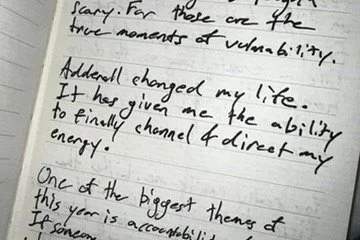 scary. For those are the
true moments of vulnability.
Adderall changed my life.
It has given me the ability
to finally channel & direct my
energy.
One of the biggest themes of
this year is accountability
If someone